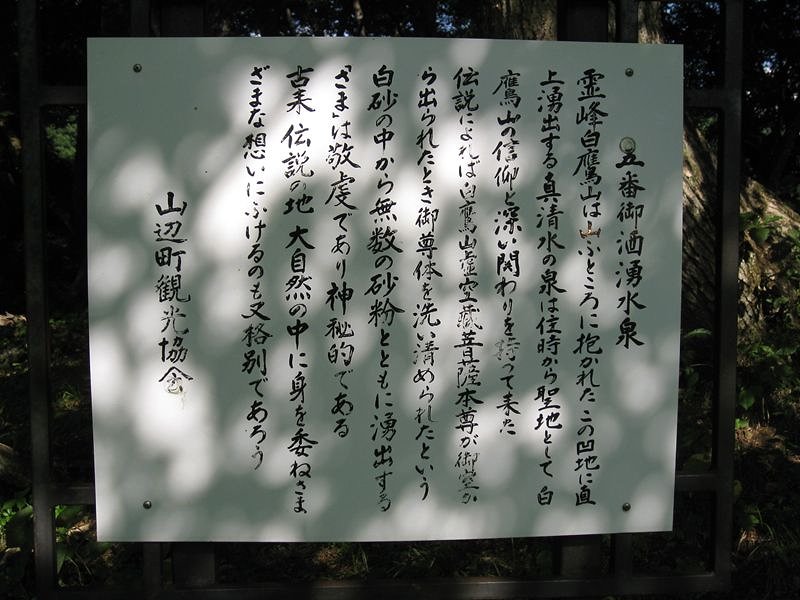 五番御酒湧水泉
霊峰白鷹山は山ふところに抱かれたこの凹地に直
上湧出する真清水の泉は往時から聖地として白
鷹山の信仰と深い関わりを持って来た
伝説によれば白鷹山虚空蔵菩薩本尊が御堂か
ら出られたとき御尊体を洗い清められたという
白砂の中から無数の砂粉とともに湧出する
「さま」は敬虔であり神秘的である
古来伝説の地大自然の中に身を委ねさま
ざまな想いにふけるのも又格別であろう
山辺町観光協会